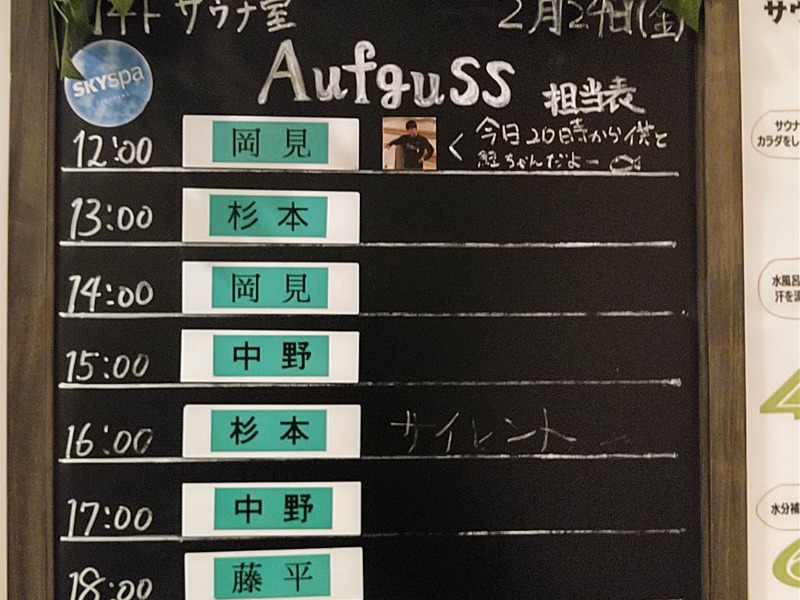 サウナ室
2月24日(金)
SKYSpa
Aufguss 担当表
12:00 岡見 く 今日20時から僕と
鯉ちゃんだよー
13:00 杉本
14:00 岡見
15:00 中野
16:00 杉本 サイレント
17:00 中野
18:00 藤平
サウ
サウナ
カラダをし
水風呂
汗を流
4
水分補
6